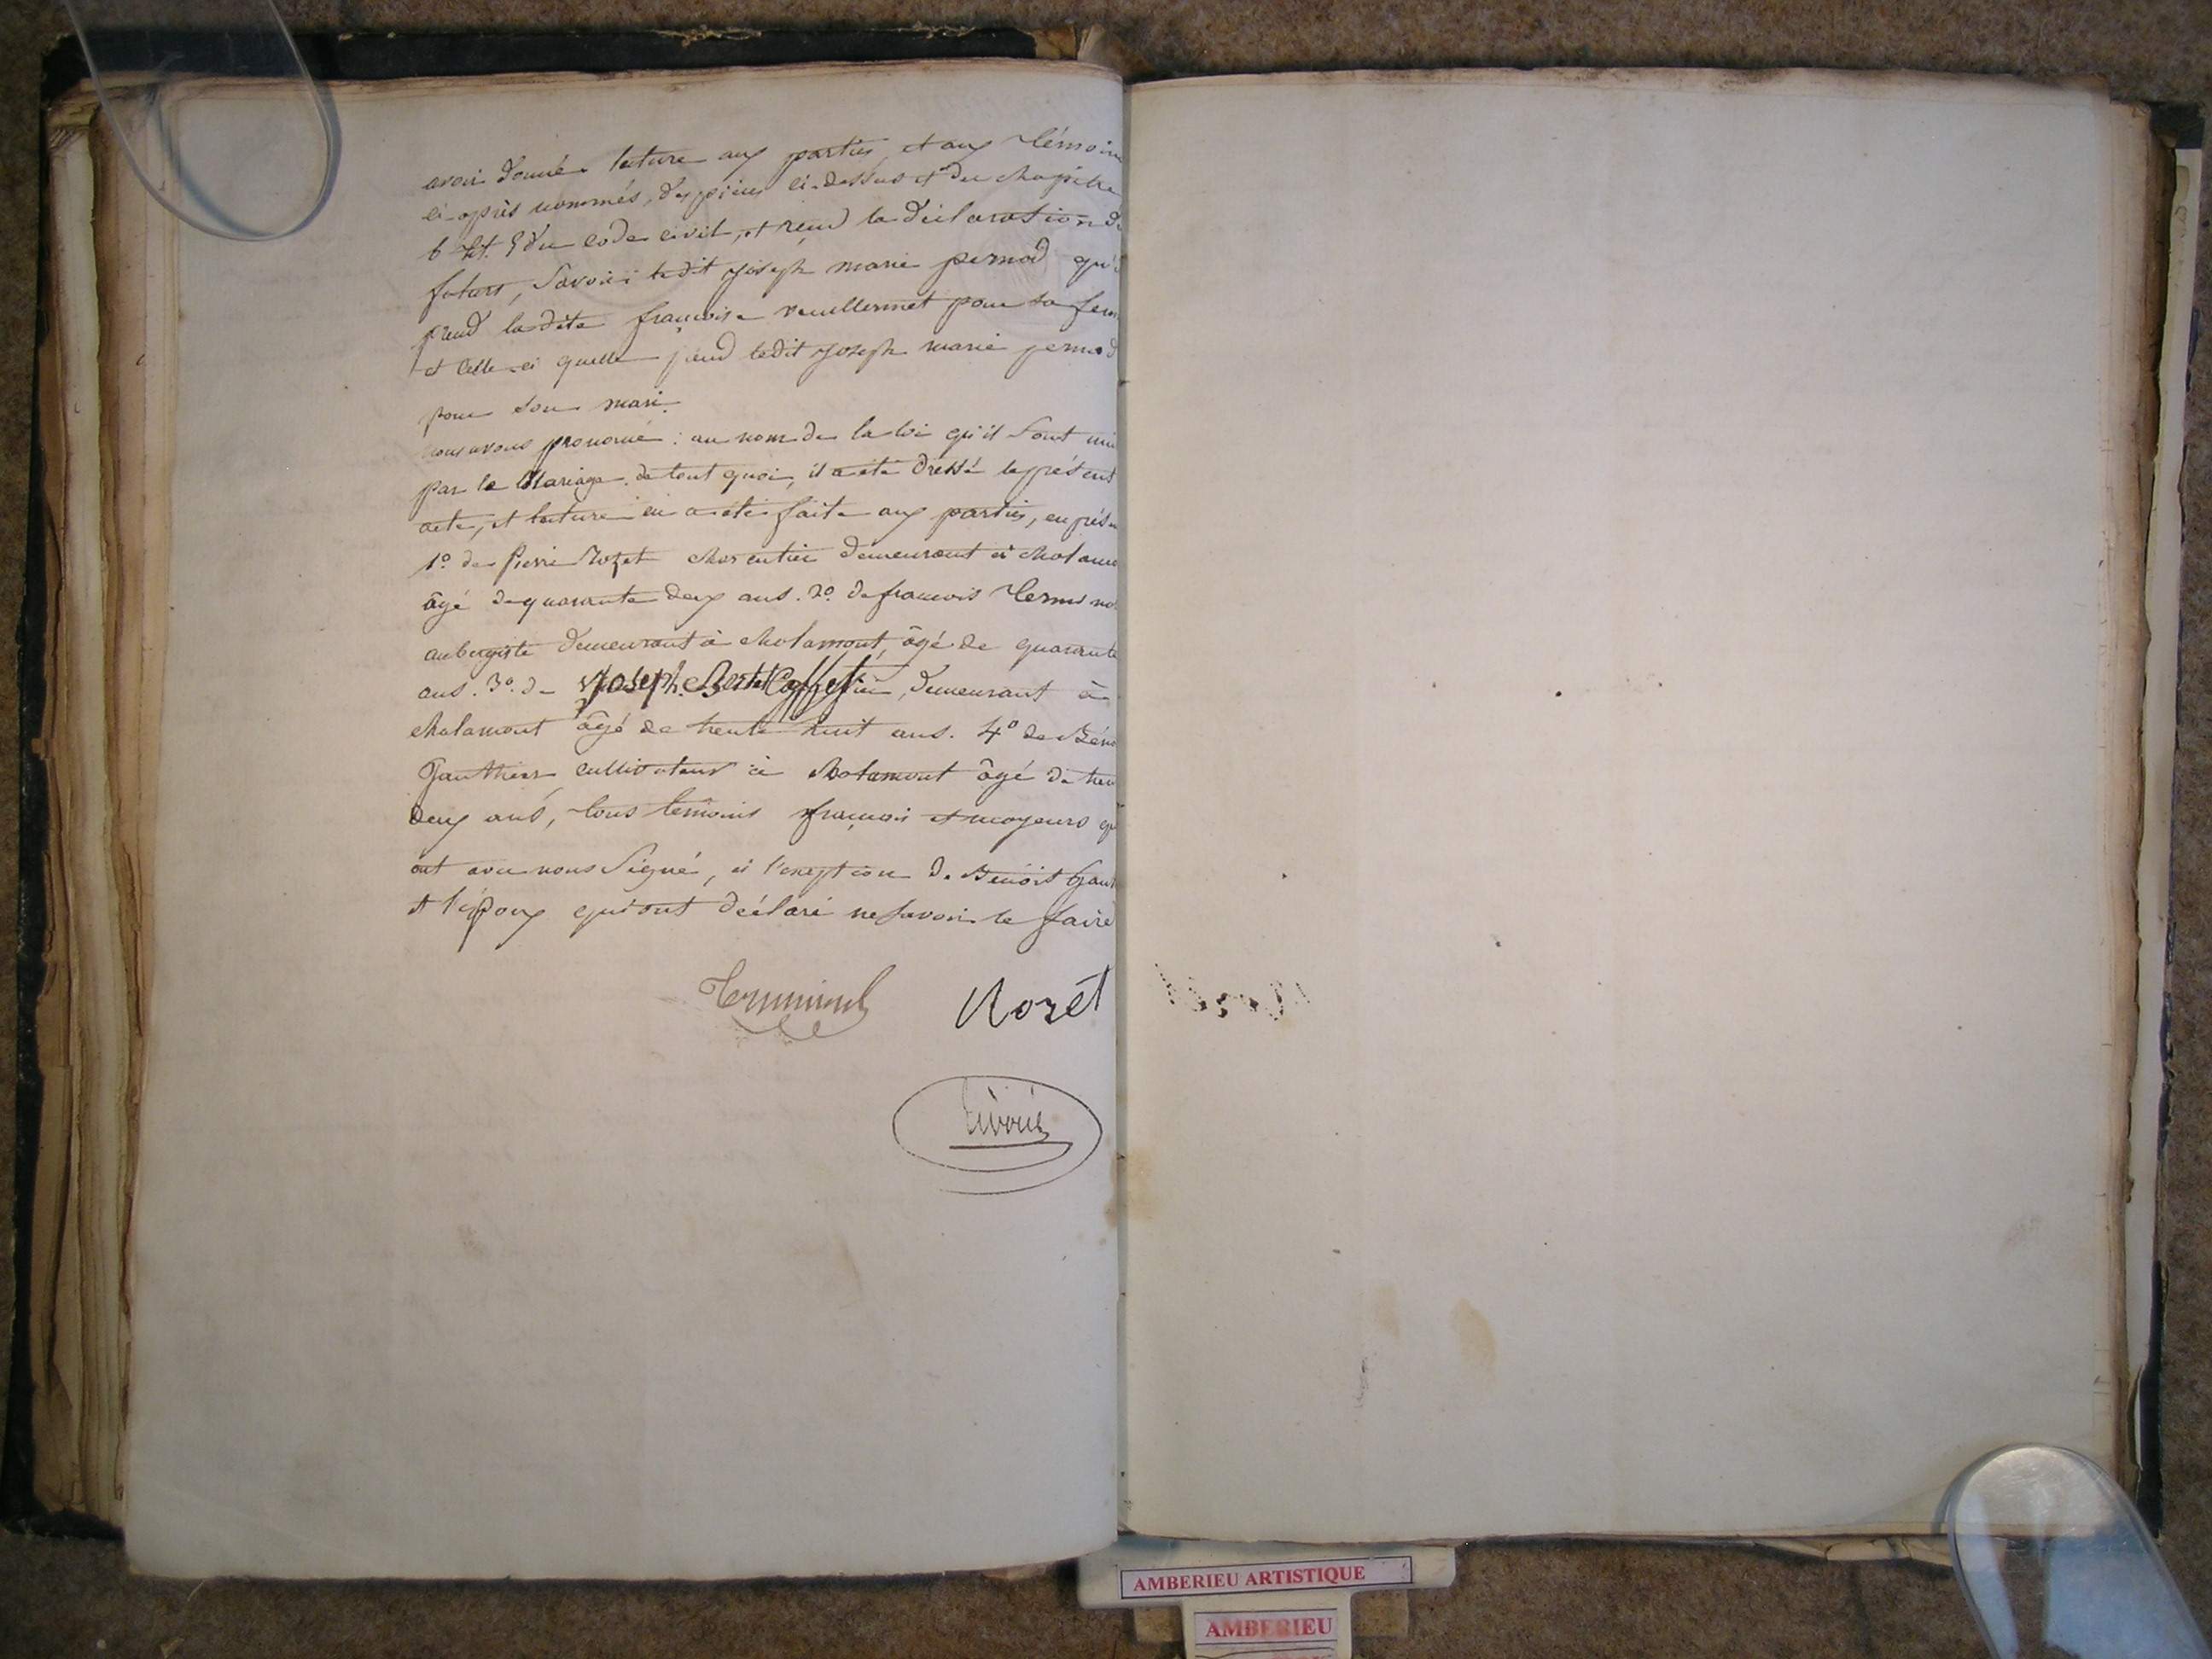 avoir donné lecture aux parties, et aux témoins
ci-après nommés, des pièces ci-dessus et du chapitre
6 tit. 5 du code civil, et reçu la déclaration de
futurs, savoir: ledit joseph marie pernod qu'il
prend ladite françoise vuillermet pour sa fem
et celle-ci quelle prend ledit joseph marie pernod
pour son mari.
nous avons prononcé: au nom de la loi qu'il sont uni
par le Mariage. de tout quoi, il a été dressé le présent
acte, et lecture en a été faite aux parties, en prése
1º de Pierre Rozet charentier demeurant à chalam
âgé de quarante deux ans. 2º de francois
aubergiste demeurant à chalamont, âgé de quarante
ans. 3º de Joseph Caffetier, demeurant à
chalamont âgé de trente huit ans. 4º de Béno
Gauthier cultivateur à chalamont âgé de tren
deux ans, tous temoins français et majeurs qu
ont avec nous signé, à l'exeption de Benoit Gaut
et l'époux qui ont déclaré ne savoir le faire
Rozet
AMBERIEU ARTISTIQUE
AMBERIEU